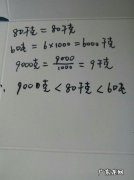 80千克=80千克
60克=6×1000=6000千克
9000克=9000/1000=9千克
9000克<80千克<60克